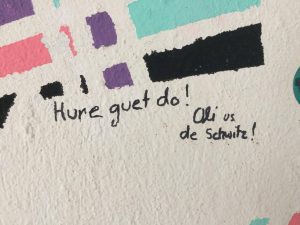 Hure guet do!
Oli us
de Schwitz!